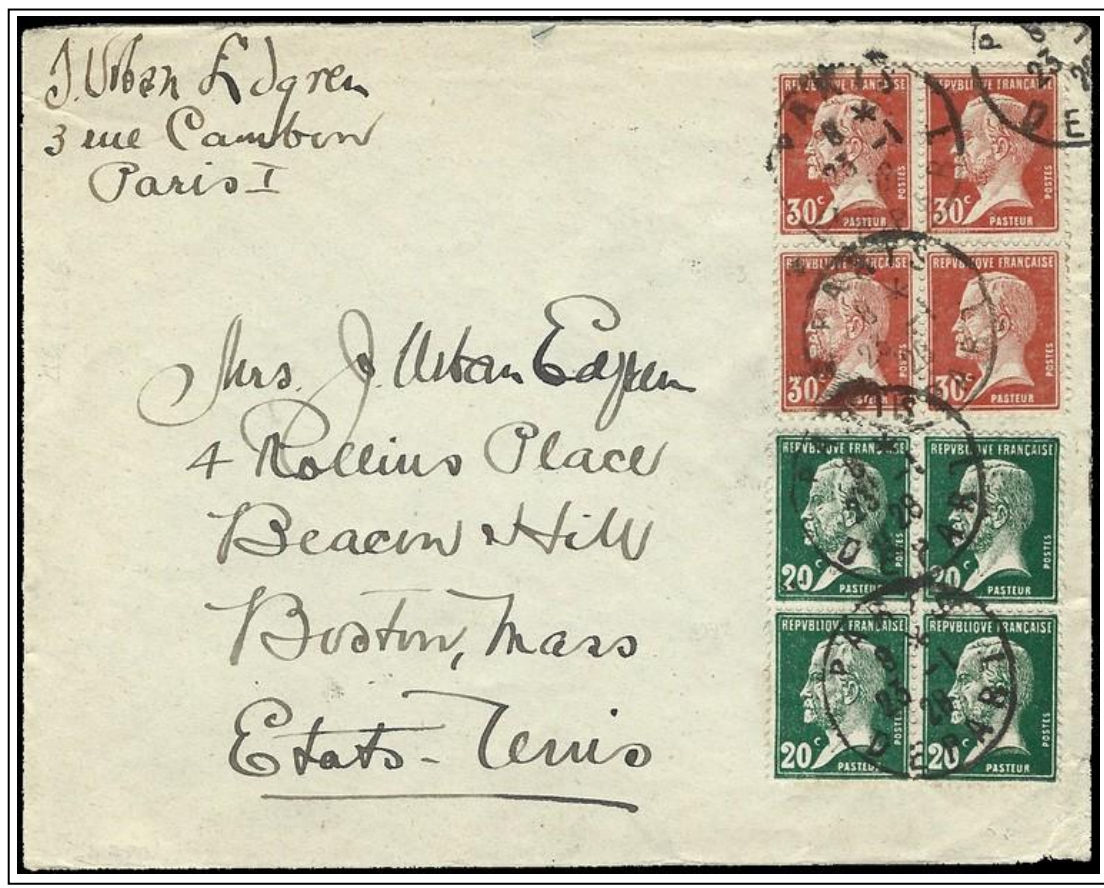 J. Urban Edgren
3 rue Cambon
Paris I
Mrs. J. Urban Edgren
4 Rollins Place
Beacon Hill
Boston, Mass
Etats-Unis
REPVBLIQVE FRANÇAISE
30c
PASTEUR
POSTES
REPVBLIQVE FRANÇAISE
30c
PASTEUR
POSTES
REPVBLIQVE FRANÇAISE
30c
REPVBLIQVE FRANÇAISE
30c
PASTEUR
REPVBLIQVE FRANÇAISE
20c
PASTEUR
POSTES
REPVBLIQVE FRANÇAISE
20c
PASTEUR
POSTES
REPVBLIQVE FRANÇAISE
20c
PASTEUR
POSTES
REPVBLIQVE FRANÇAISE
20c
PASTEUR
POSTES
PARIS
8 *
23 -1
28
DEPART